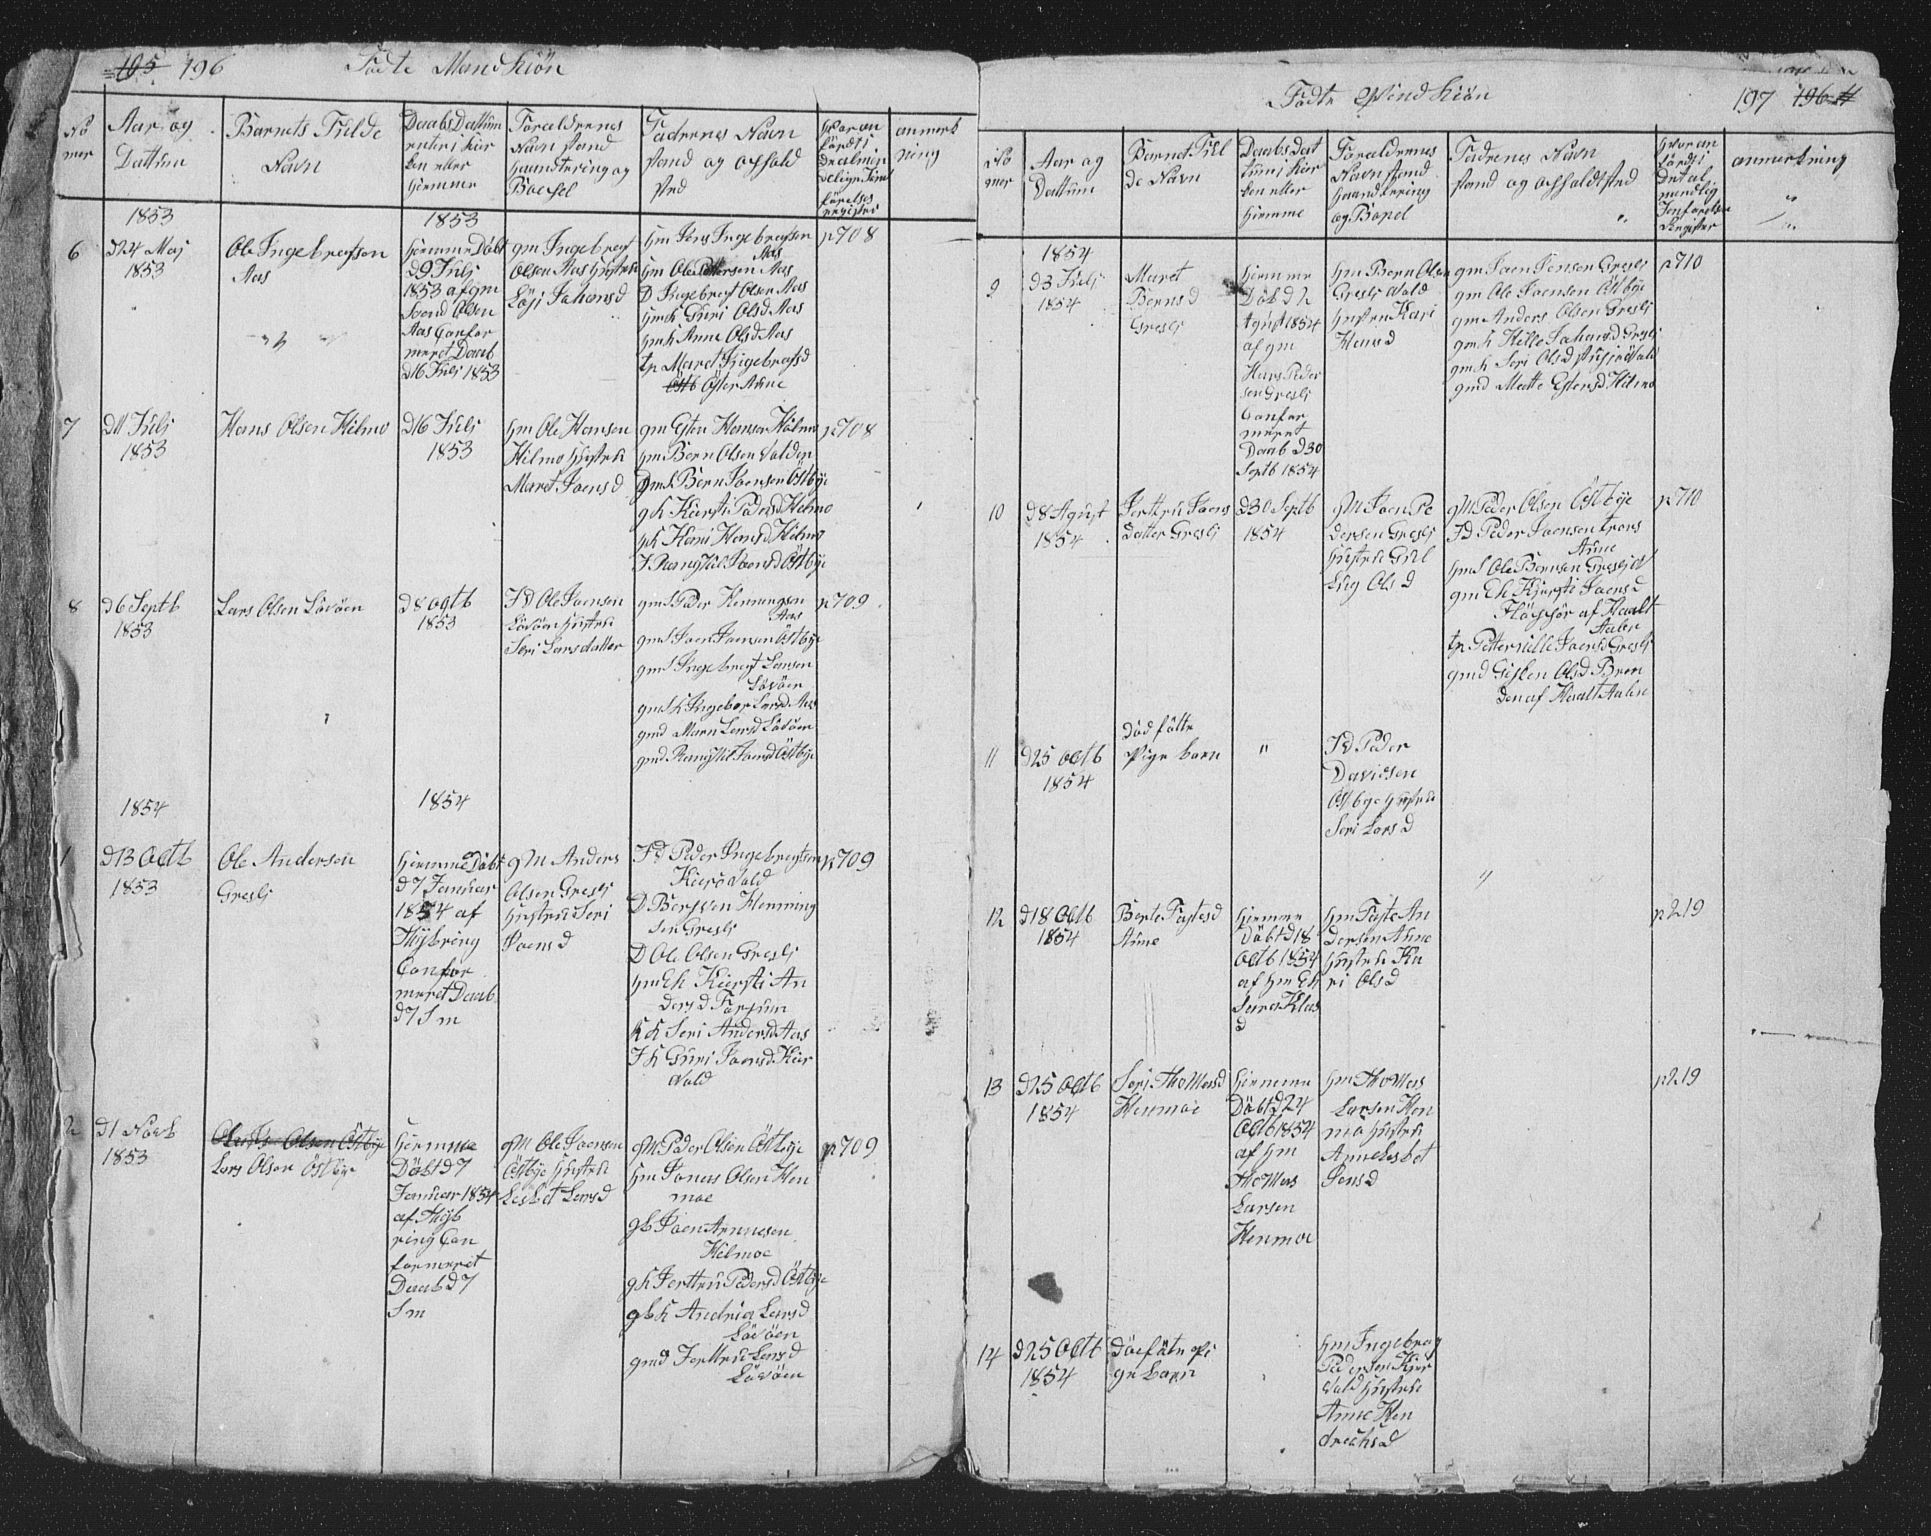 105 196 Födte Mandkiön
No
mer
Aar og
Dattum
Barnets Fulde
Navn
Daabs Dattum
enten i Kir
ken eller
hiemme
Foreldrenes
Navn stand
haandtering og
Boepel
Fadrenes Navn
stand og ophold
sted
hvor an
fördt i
De almin
Delige Jem
förelses
register
anmerk
ning
1853
1853
6
D24 Maj
1853
Ole Ingebregtsen
Aas
hiemme Döbt
D9 Juli
1853 af gm
Svend Olsen
Aas Confor
meret Daab
D16 Juli 1853
gm Ingebregt
Olsen Aas hustru
Johansd
hm Jens Ingebregtsen
Aas
hm Ole Pettersen Aas
D Ingebregt Olsen Aas
hmk Guri Olsd Aas
hmk Anne Olsd Aas
tp Maret Ingebregtsd
Östb Öster Aune
p708
7
D11 Juli
1853
Hans Olsen Hilmo
D16 Juli
1853
hm Ole Hansen
Hilmo hustru
Maret Joensd
gm Esten Hansen Hilmo
hm Bern Olsen Volden
gmS Bern Joensen Östbye
gk Kiersti Pedersd Hilmo
pk Kari Hansd Hilmo
J Rangnil Joensd Östbye
p708
8
D6 Septb
1853
Lars Olsen Lövöen
D8 Octb
1853
JD Ole Joensen
Lövöen hustru
Seri Larsdatter
gmS Peder Henningsen
Aas
gmS Joen Joensen Östbye
gmS Ingebregt Larsen
Lövöen
gmSk Ingebor Larsd Aas
gmd Maren Larsd Lövöen
gmd Rangnil Joensd Östbye
p709
1854
1854
1
D13 Octb
1853
Ole Andersen
Gresli
hiemme Döbt
D7 Januar
1854 af
Nybring
Confor
meret Daab
D7 S m
gM Anders
Olsen Gresli
hustru Seri
Joensd
JD Peder Ingebregtsen
Kierövold
D Bersven Henning
sen Gresli
D Ole Olsen Gresli
hmEk Kiersti An
dersd Fossum
KK Seri Andersd Aas
JK Guri Joensd Kier
vold
p709
2
D1 Novb
1853
Olsen Östbye
Lars Olsen Östbye
hiemme
Döbt D7
Januar 1854
af Nyb
ring Con
formeret
Daab D7
S m
gM Ole Joensen
Östbye hustru
Lisbet Larsd
gM Peder Olsen Östbye
hm Jonas Olsen Hen
moe
gk Joen Arnnesen
Hilmoe
gk Jorttru Pedersd Östbye
gkk Andria Larsd
Lövöen
gmd Jorttru Larsd
Lövöen
p709
Födte Qvindkiön 197 196
No
mer
Aar og
Dattum
Barnet Ful
de Navn
Daabs Dat
tum i Kir
ken eller
hiemme
Foreldrenes
Navn stand
haandtering
og Bopel
Fadrenes Navn
stand og opholdsted
hvor an
fördt i
Det al
mindlig
Jenförelses
Register
anmerkning
1854
9
D3 Juli
1854
Maret
Bernsd
Gresli
hiemme
Döbt D2
Agust 1854
af gm
Hans Peder
sen Gresli
Confor
meret
Daab D30
Septb 1854
hm Bern Olsen
Gresli Vold
hustru Kari
Hansd
gm Joen Jensen Gresli
gm Ole Joensen Östbye
gm Anders Olsen Gresli
gmk Hille Johansd Gresli
gmk Seri Olsd
gmd Mette Estensd Hilmo
p710
10
D8 Agust
1854
Jorttru Joens
datter Gresli
D30 Septb
1854
gM Joen Pe
dersen Gresli
hustru Gul
Olsd
gM Peder Olsen Östbye
JD Peder Joensen trons
Aune
hmS Ole Bernsen Gresli
gmEk Kjersti Joensd
af Haalt
Aalen
tp Petternille Joensd Gresli
gmd Gislen Olsd Bren
den af Haalt Aalen
p710
11
D25 Octb
1854
död fölte
Pige barn
"
JD Peder
Davidsen
Östbye hustru
Seri Larsd
"
12
D18 Octb
1854
Berte Tostesd
Aune
hiemme
Döbt D18
Octb 1854
af hm Ek
Klas
d
hm Toste An
dersen Aune
hustru Ka
ri Olsd
p219
13
D25 Octb
1854
Seri Thomasd
Henmoe
hiemme
Döbt D24
Octb 1854
af hm
Thomas
Larsen
Henmoe
hm Thomas
Larsen Hen
mo hustru
Anne Lisbet
Jonsd
p219
14
D25 Octb
1854
död fött Pi
ge barn
hm Ingebreg
Pedersen Kier
vold hustru
Anne Hen
drechsd